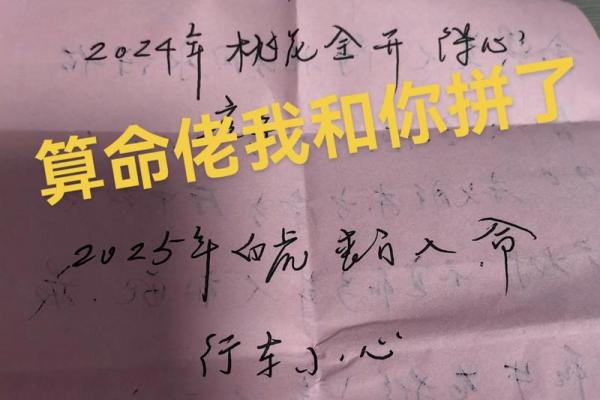 2024年桃花全开 降心
算命佬我和你拼了
2025年白虎 入命
行车小心